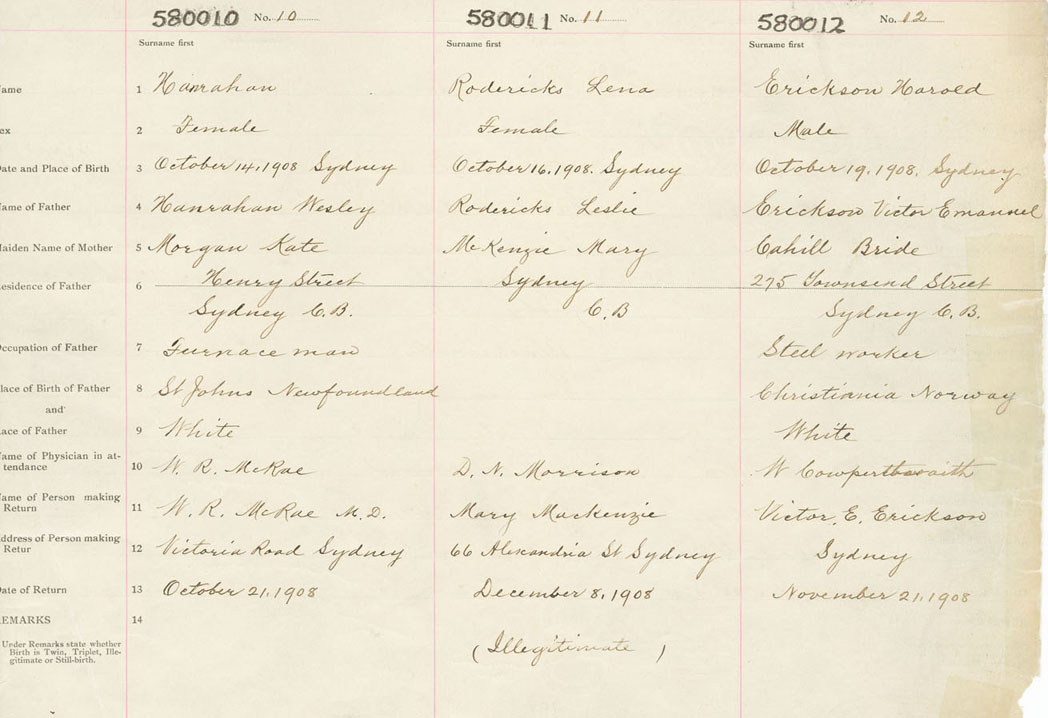 580010 No. 10 580011 No. 11 580012 No. 12
Surname first Surname first Surname first
ame 1 Hanrahan Rodericks Lena Erickson Harold
ex 2 Female Female Male
ate and Place of Birth 3 October 14, 1908 Sydney October 16, 1908. Sydney October 19, 1908. Sydney
ame of Father 4 Hanrahan Wesley Rodericks Leslie Erickson Victor Emanuel
aiden Name of Mother 5 Morgan Kate McKenzie Mary Cahill Bride
esidence of Father 6 Henry Street Sydney 275 Townsend Street
Sydney C.B. C.B Sydney C.B.
ccupation of Father 7 Furnace man Steel worker
lace of Birth of Father 8 St Johns Newfoundland Christiania Norway
and
ace of Father 9 White White
ame of Physician in at-
tendance 10 W. R. McRae D. N. Morrison W Cowperthwaith
ame of Person making
Return 11 W. R. McRae M.D. Mary Mackenzie Victor. E. Erickson
ddress of Person making
Retur 12 Victoria Road Sydney 66 Alexandria St Sydney Sydney
ate of Return 13 October 21, 1908 December 8, 1908 November 21, 1908
EMARKS 14
Under Remarks state whether
Birth is Twin, Triplet, Ille-
gitimate or Still-birth.
(Illegitimate)